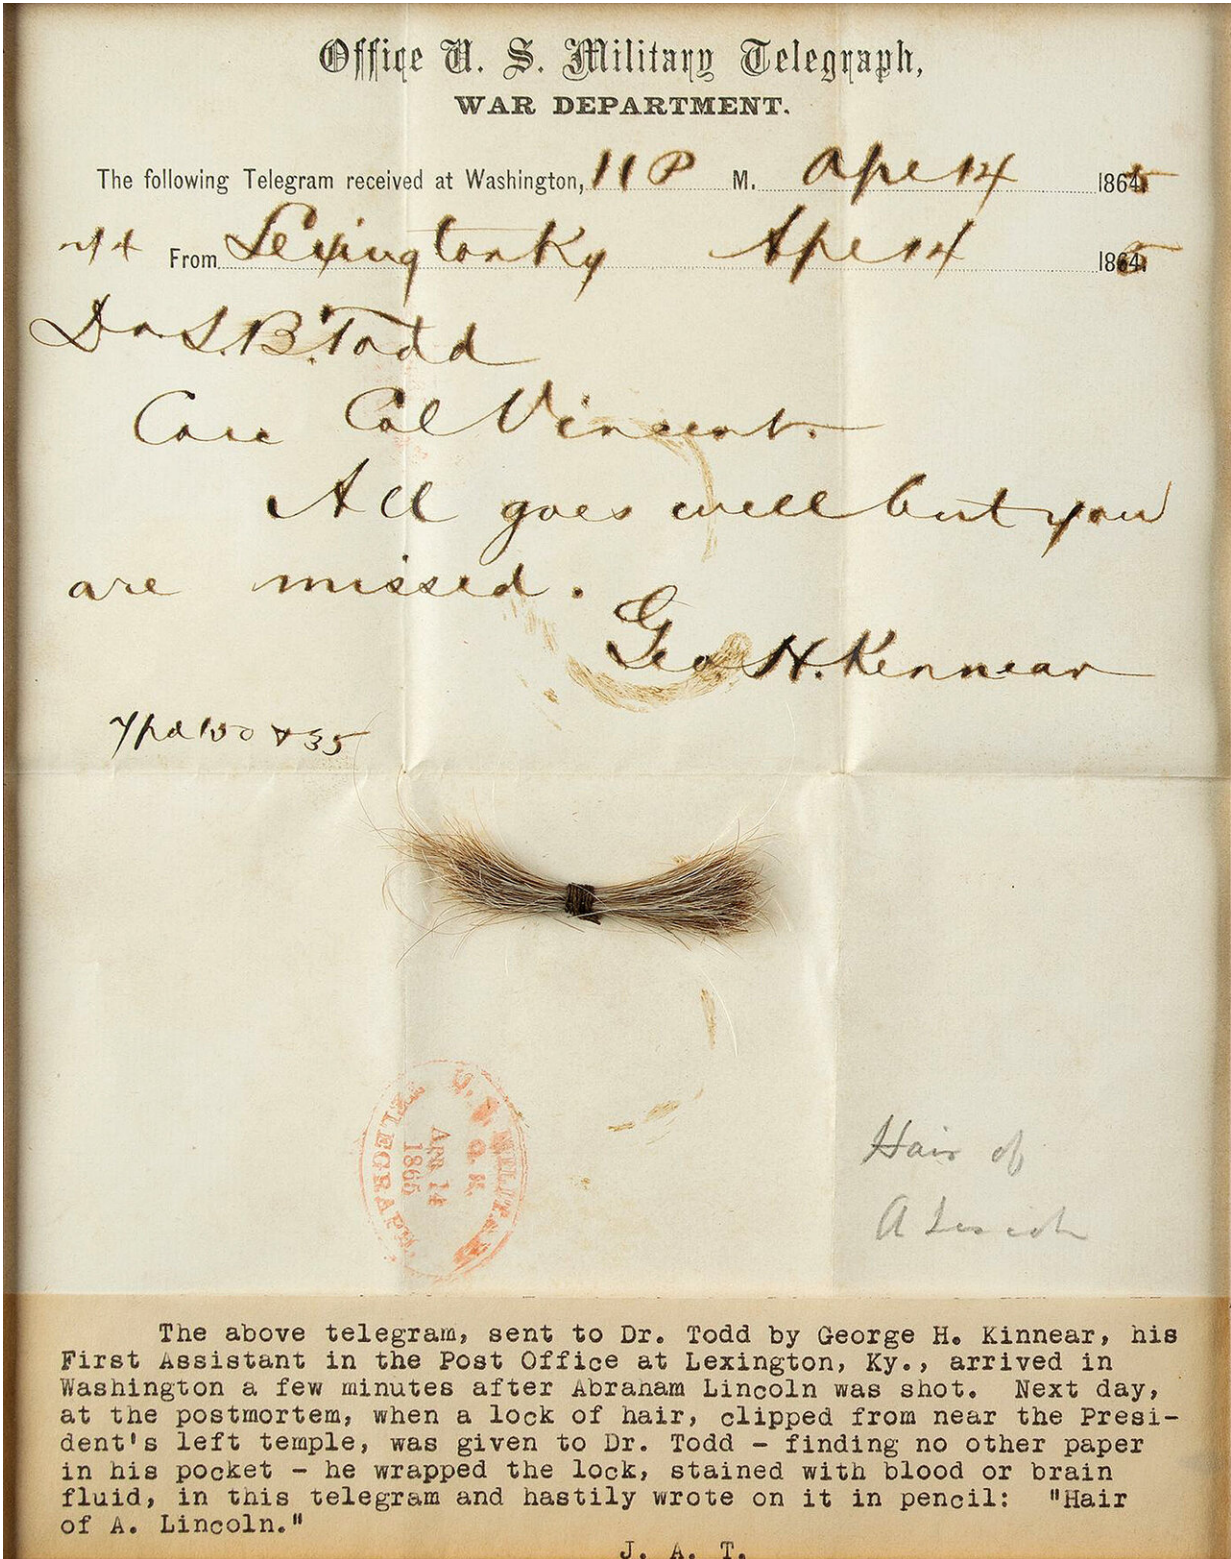 Office U. S. Military Telegraph,
WAR DEPARTMENT.
The following Telegram received at Washington, 11 P M. Apr 14 1865
From Lexington Ky Apr 14 1865
Dr L. B. Todd
Care Col Vincent.
All goes well but you
are missed.
Geo H. Kennear
U. S. MILITARY
O. K.
APR. 14
1865
TELEGRAPH.
Hair of
A Lincoln
The above telegram, sent to Dr. Todd by George H. Kinnear, his
First Assistant in the Post Office at Lexington, Ky., arrived in
Washington a few minutes after Abraham Lincoln was shot. Next day,
at the postmortem, when a lock of hair, clipped from near the Presi-
dent's left temple, was given to Dr. Todd - finding no other paper
in his pocket - he wrapped the lock, stained with blood or brain
fluid, in this telegram and hastily wrote on it in pencil: "Hair
of A. Lincoln."
J. A. T.